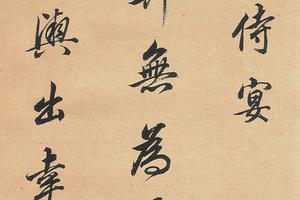 侍宴
無為
出幸